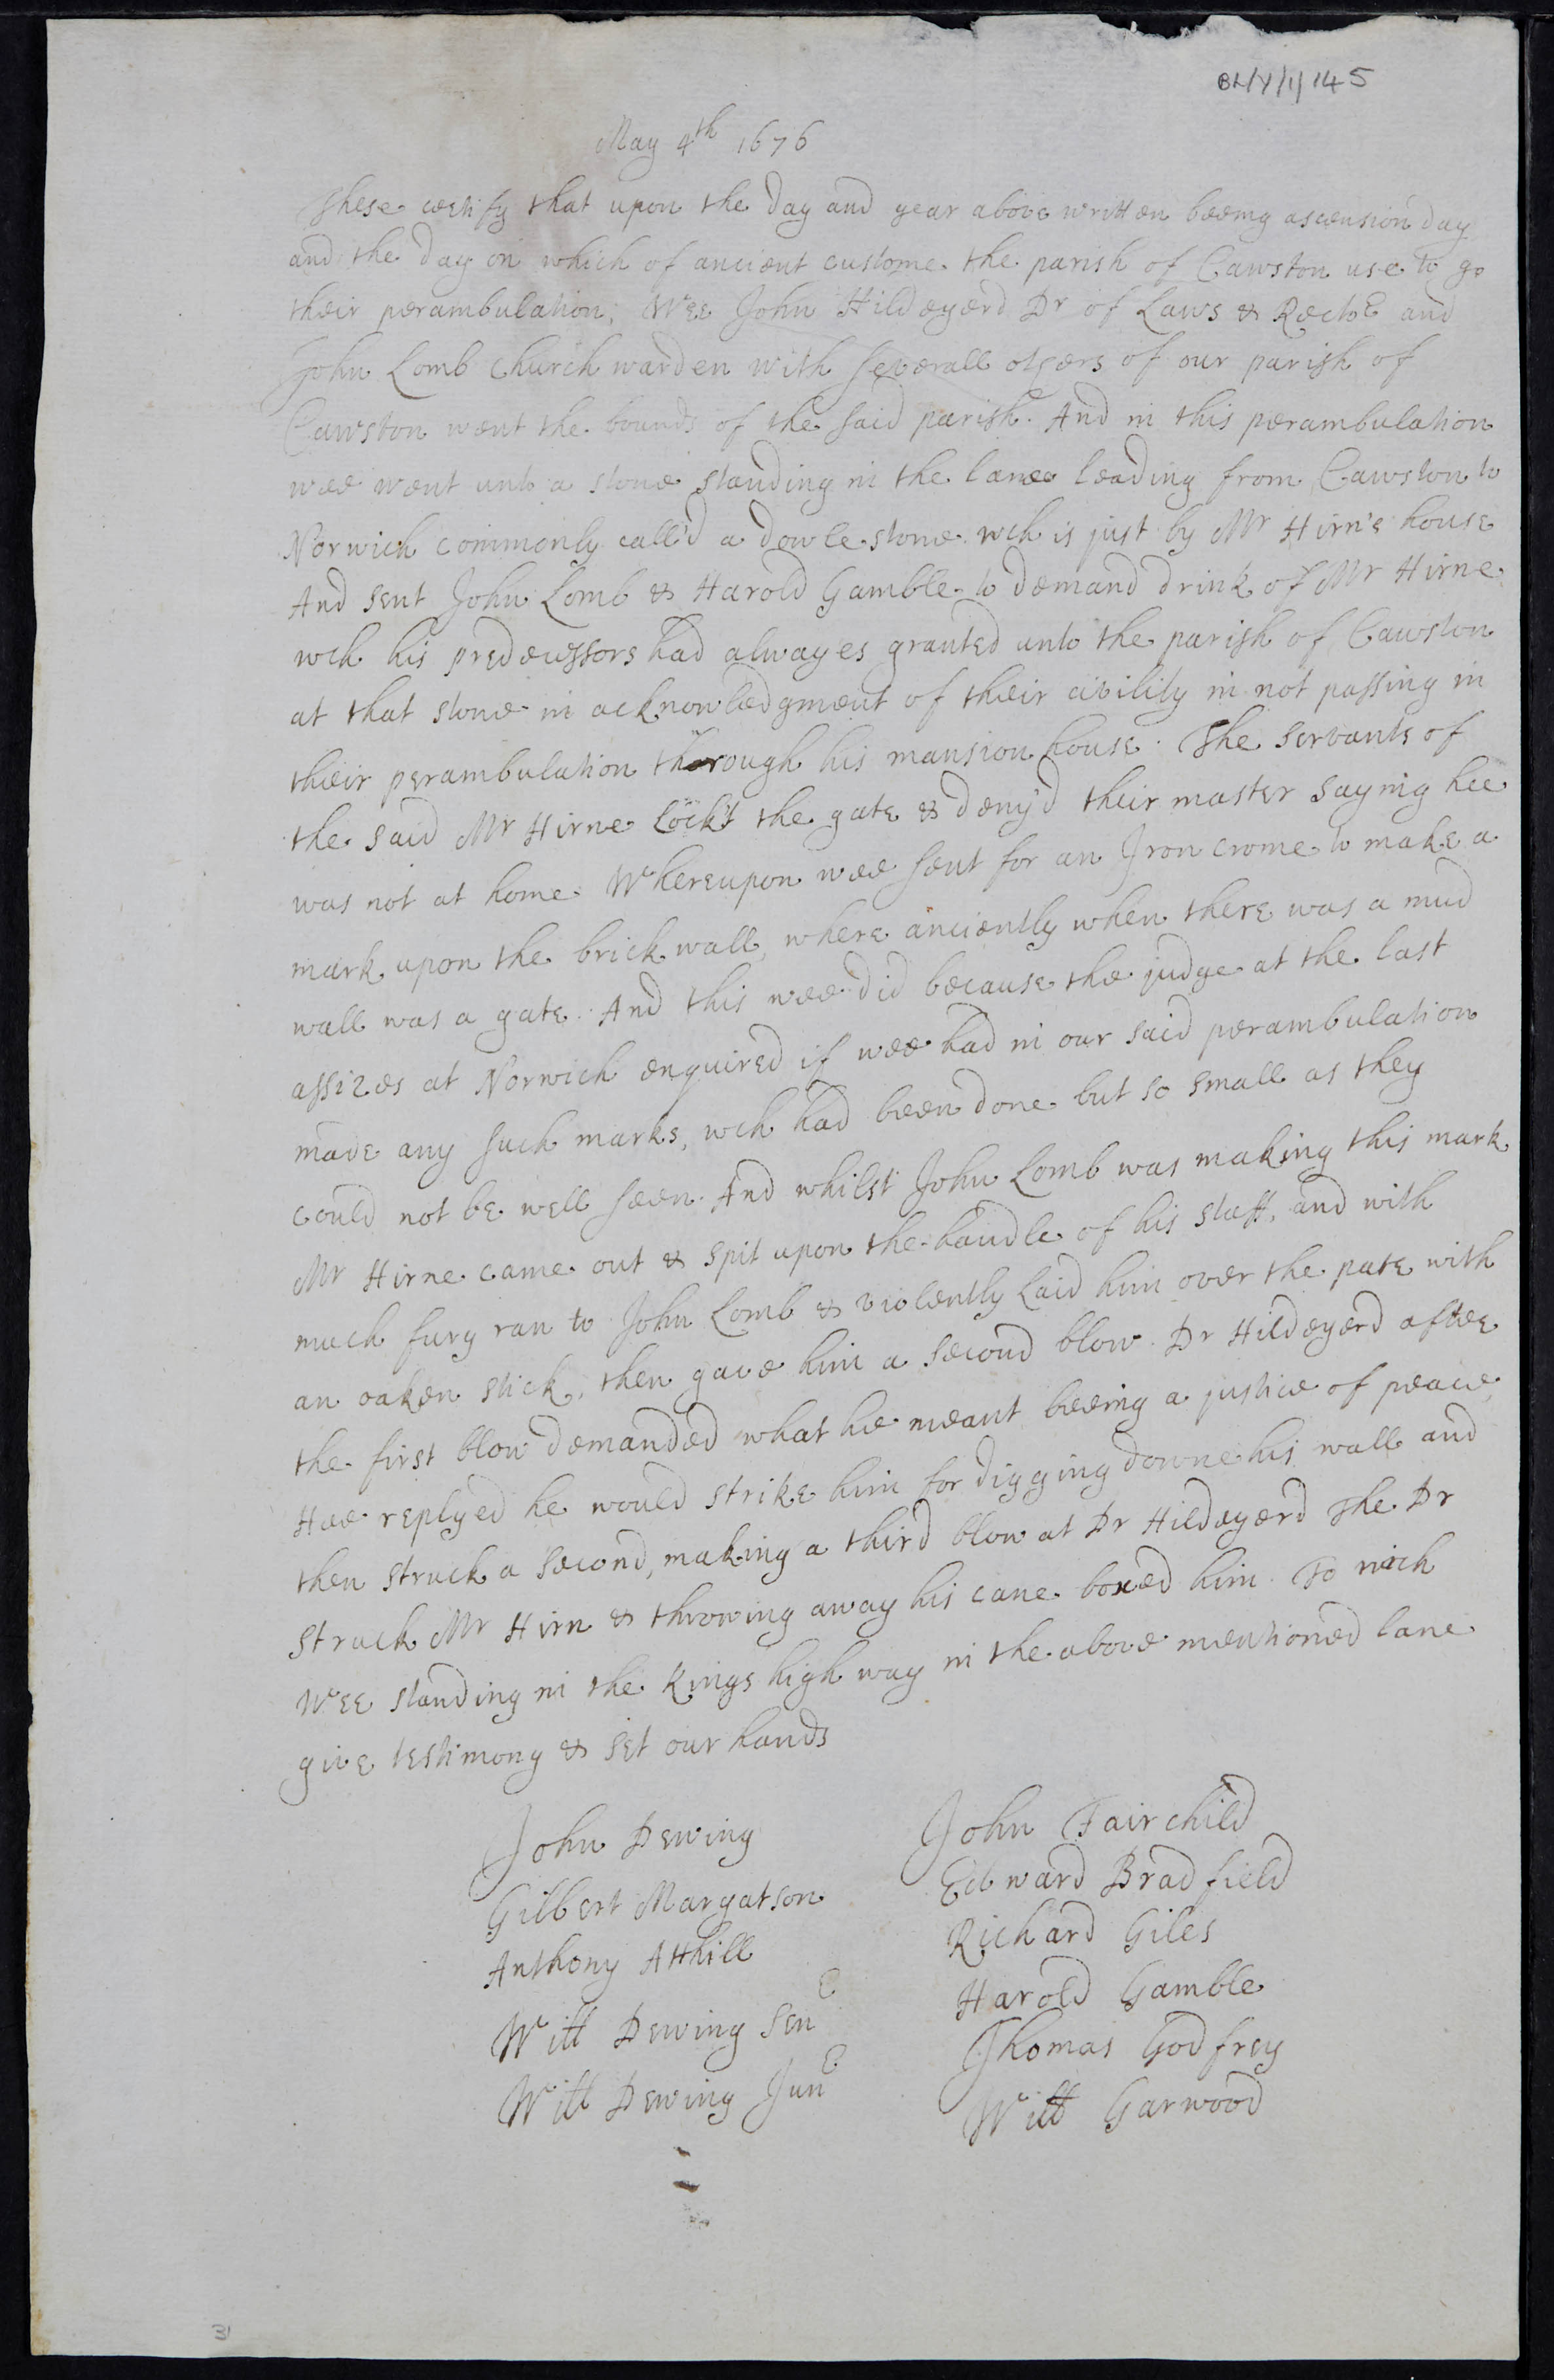 BL/Y/1/145
May 4th 1676
These certify that upon the day and year above written beeing ascension day
and the day on which of ancient custome the parish of Cawston use to go
their perambulation; Wee John Hildeyerd Dr of Laws & Rector and
John Lomb Church warden with severall others of our parish of
Cawston went the bounds of the said parish. And in this perambulation
wee went unto a stone standing in the lane leading from Cawston to
Norwich commonly call'd a dowle stone wch is just by Mr Hirn's house
And sent John Lomb & Harold Gamble to demand drink of Mr Hirne
wch his predecessors had alwayes granted unto the parish of Cawston
at that stone in acknowledgment of their civility in not passing in
their perambulation thorough his mansion house. The servants of
the said Mr Hirne lock't the gate & deny'd their master saying hee
was not at home. Whereupon wee sent for an Iron crome to make a
mark upon the brick wall, where anciently when there was a mud
wall was a gate. And this wee did because the judge at the last
assizes at Norwich enquired if wee had in our said perambulation
made any such marks, wch had been done but so small as they
could not be well seen. And whilst John Lomb was making this mark
Mr Hirne came out & spit upon the handle of his staff, and with
much fury ran to John Lomb & violently laid him over the pate with
an oaken stick, then gave him a second blow. Dr Hildeyerd after
the first blow demanded what hee meant beeing a justice of peace,
Hee replyed he would strike him for digging downe his wall and
then struck a second, making a third blow at Dr Hildeyerd The Dr
struck Mr Hirn & throwing away his cane boxed him. To wich
Wee standing in the Kings high way in the above mentioned lane
give testimony & set our hands
John Dewing
Gilbert Margatson
Anthony Atthill
Will Dewing Senr
Will Dewing Junr
John Fairchild
Edward Bradfield
Richard Giles
Harold Gamble
Thomas Godfrey
Will Garwood
31